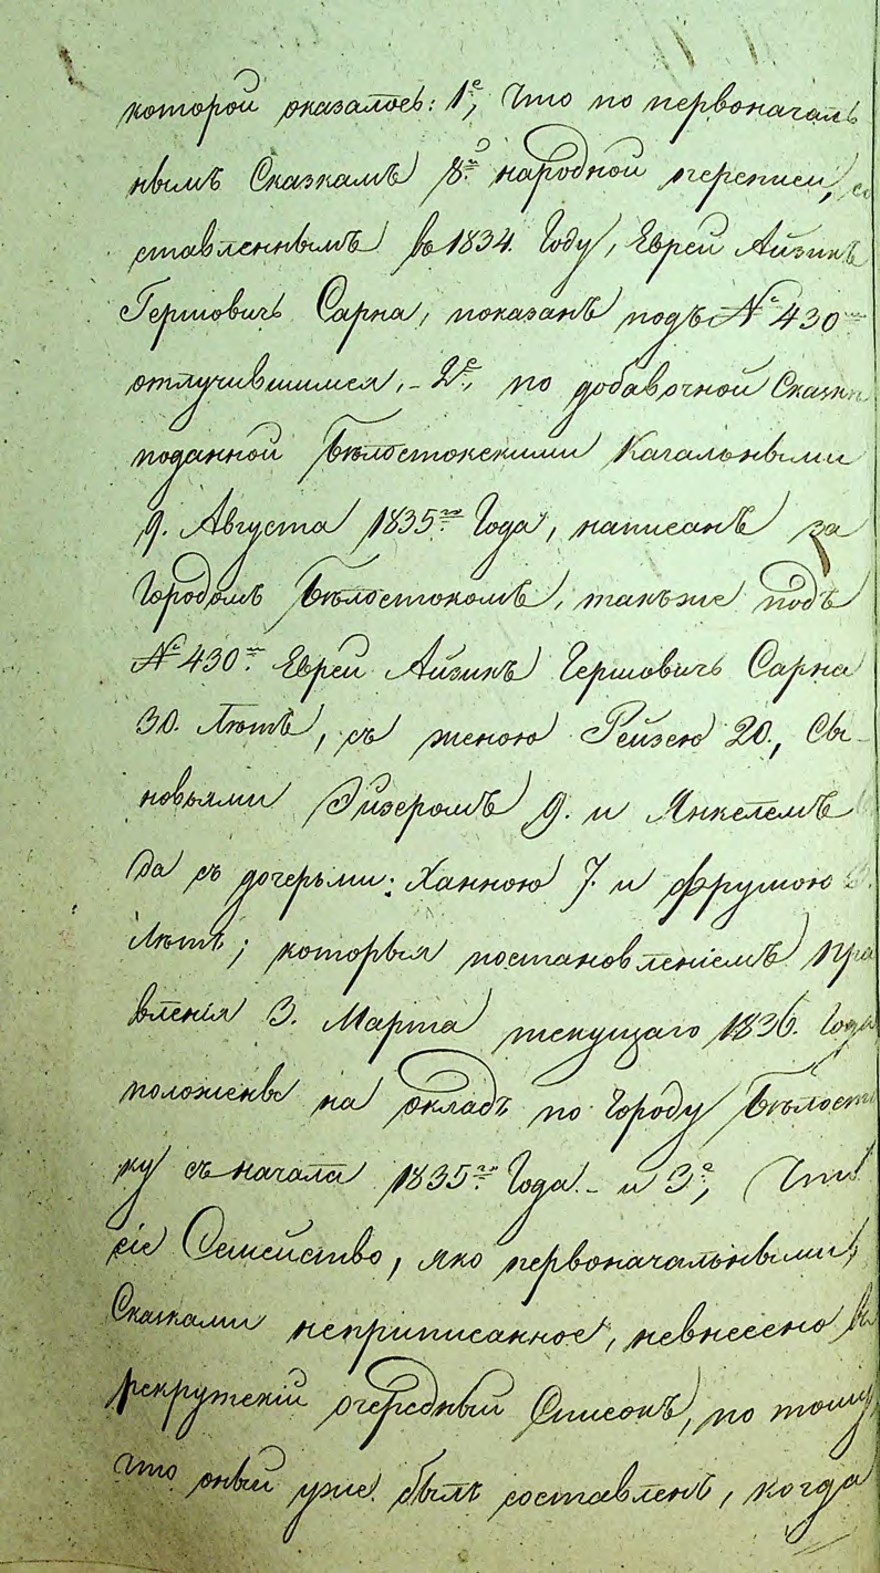 которой оказалось: 1е, Что по первоначаль
нымъ Сказкамъ 8й народной переписи, со
ставленнымъ въ 1834. Году, Еврей Айзикъ
Гершовичъ Сарна, показанъ подъ № 430м
отлучившимся, - 2е, по добавочной Сказкѣ
поданной Бѣлостокскими Кагальными
9. Августа 1835го Года, написанъ за
Городомъ Бѣлостокомъ, такъ же подъ
№ 430м. Еврей Айзикъ Гершовичъ Сарна
30. Лѣтъ, съ женою Рейзею 20., Сы-
новьями Эизеромъ 9. и Янкелемъ
да съ дочерьми: Ханною 7. и Фрумою
Лѣтъ; которыя постановленіемъ Пра
вленія 3. Марта текущаго 1836. Года
положены на окладъ по Городу Бѣлосто
ку съ начала 1835го Года. - и 3е, Что
сіе Семейство, яко первоначальными
Сказками неприписанное, невнесено въ
рекрутскій очередный Списокъ, по тому
что оный уже былъ составленъ, когда